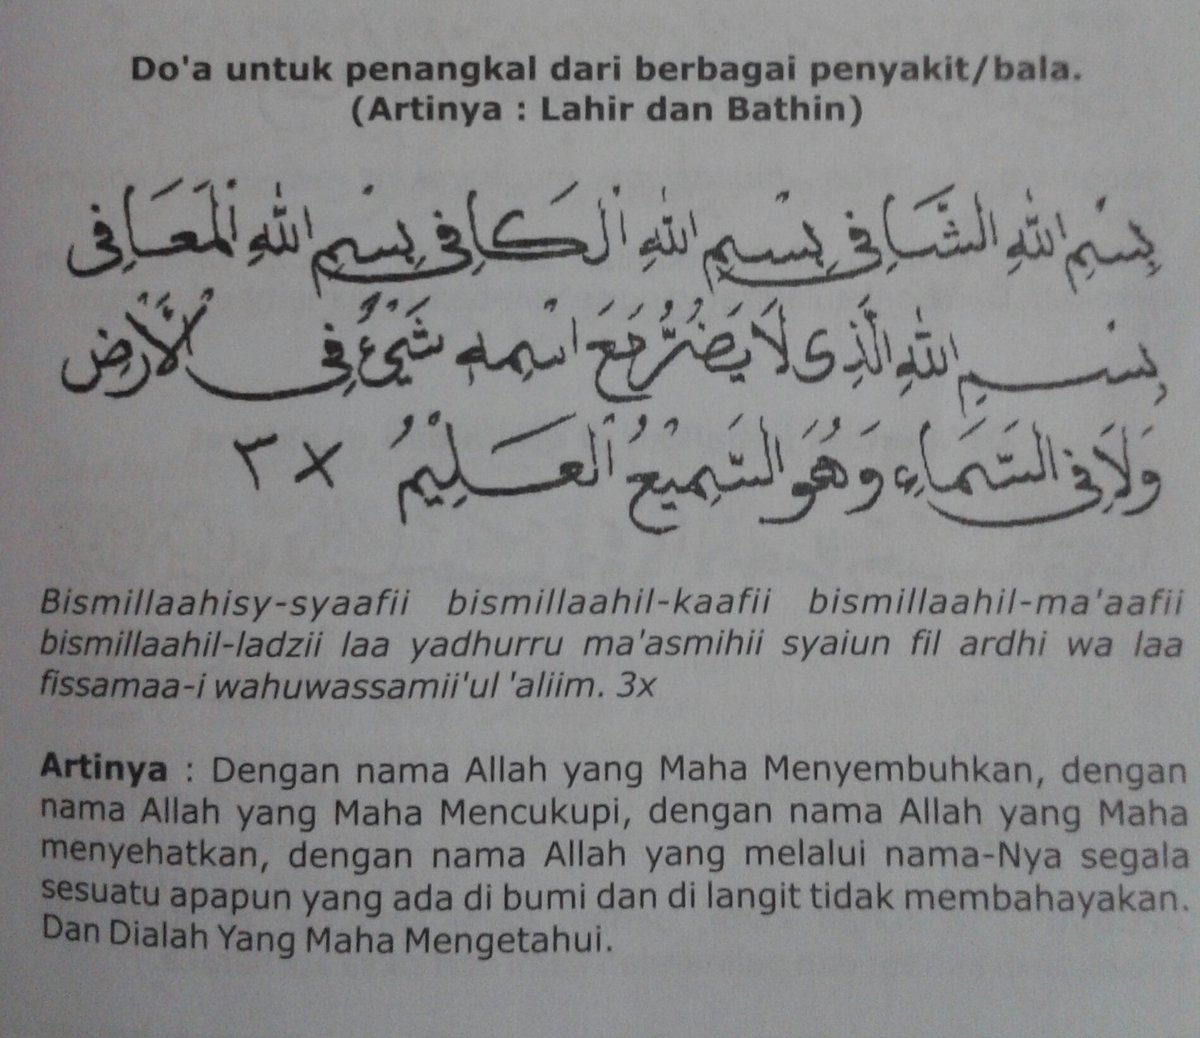 Do'a untuk penangkal dari berbagai penyakit/bala.
(Artinya : Lahir dan Bathin)
بِسْمِ اللهِ الشَّافِي بِسْمِ اللهِ الْكَافِي بِسْمِ اللهِ الْمُعَافِى
بِسْمِ اللهِ الَّذِى لَا يَضُرُّ مَعَ اسْمِهِ شَيْئٌ فِى الْأَرْضِ
وَلَا فِى السَّمَاءِ وَهُوَ السَّمِيْعُ الْعَلِيْمُ × ٣
Bismillaahisy-syaafii bismillaahil-kaafii bismillaahil-ma'aafii
bismillaahil-ladzii laa yadhurru ma'asmihii syaiun fil ardhi wa laa
fissamaa-i wahuwassamii'ul 'aliim. 3x
Artinya : Dengan nama Allah yang Maha Menyembuhkan, dengan
nama Allah yang Maha Mencukupi, dengan nama Allah yang Maha
menyehatkan, dengan nama Allah yang melalui nama-Nya segala
sesuatu apapun yang ada di bumi dan di langit tidak membahayakan.
Dan Dialah Yang Maha Mengetahui.